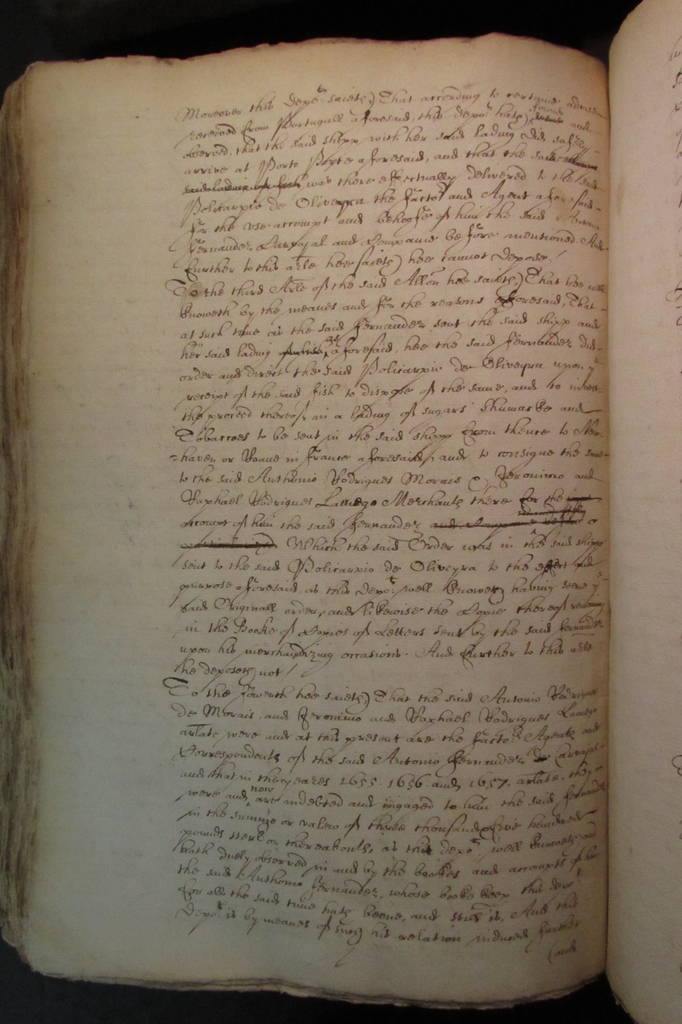 Moreover this depot saieth That according to certaine advise
received from Portugall aforesaid, this depot hath and
observed, that the said shipp with her said lading did safely
arrive at Porto Porte aforesaid, and that the said
said lading of fish was there effectually delivered to the said
Policarpio de Oliveyra the factor and Agent aforesaid
for the use accompt and behoofe of him the said
Fernandez Carvajal and Company before mentioned. And
further to this arle hee saieth hee cannot depose./
To the third Arle of the said Allon hee saieth That hee well
knoweth by the meanes and for the reasons aforesaid, That
at such time as the said Fernandez sent the said shipp and
her said lading as aforesaid, hee the said Fernandez did
order and direct the said Policarpio de Oliveyra upon ye
receipt of the said fish to dispose of the same, and to invest
the proceed thereof in a lading of sugars Shumacke and
Tobaccoes to be sent in the said shipp from thence to New
haven or Roane in France aforesaid, and to consigne the same
to the said Anthonio Rodrigues Morais Jeronimo and
Raphael Rodrigues Lamego Merchants there for the
accompt of him the said Fernandez and Company before or
Which the said Order was in the said shipp
sent to the said Policarpio de Oliveyra to the effect and
purpose aforesaid, as this depot well knoweth having seene ye
said Originall order, and likewise the Copie thereof remaining
in the Booke of Copies of Letters sent by the said Fernandez
upon his merchandizing occasions. And further to this arle
he deposeth not./
To the fowerth hee saieth That the said Antonio Rodrigues
de Morais, and Jeronimo and Raphael Rodrigues Lamego
arlate, were and at this present are the factors Agents and
Correspondents of the said Antonio Fernandez Carvajal
and that in the yeares 1655. 1656 and 1657. arlate, they
were and now are indebted and ingaged to him the said, Fernandez
in the summe or valew of three thousand five hundred
pounds sterl or thereabouts, as this depot well knoweth and
hath duely observed in and by the bookes and accompts of him
the said Anthonio Fernandez, whose booke keep this depot
for all the said time hath beene, and still is. And this
depot is by meanes of his relation induced further
(and